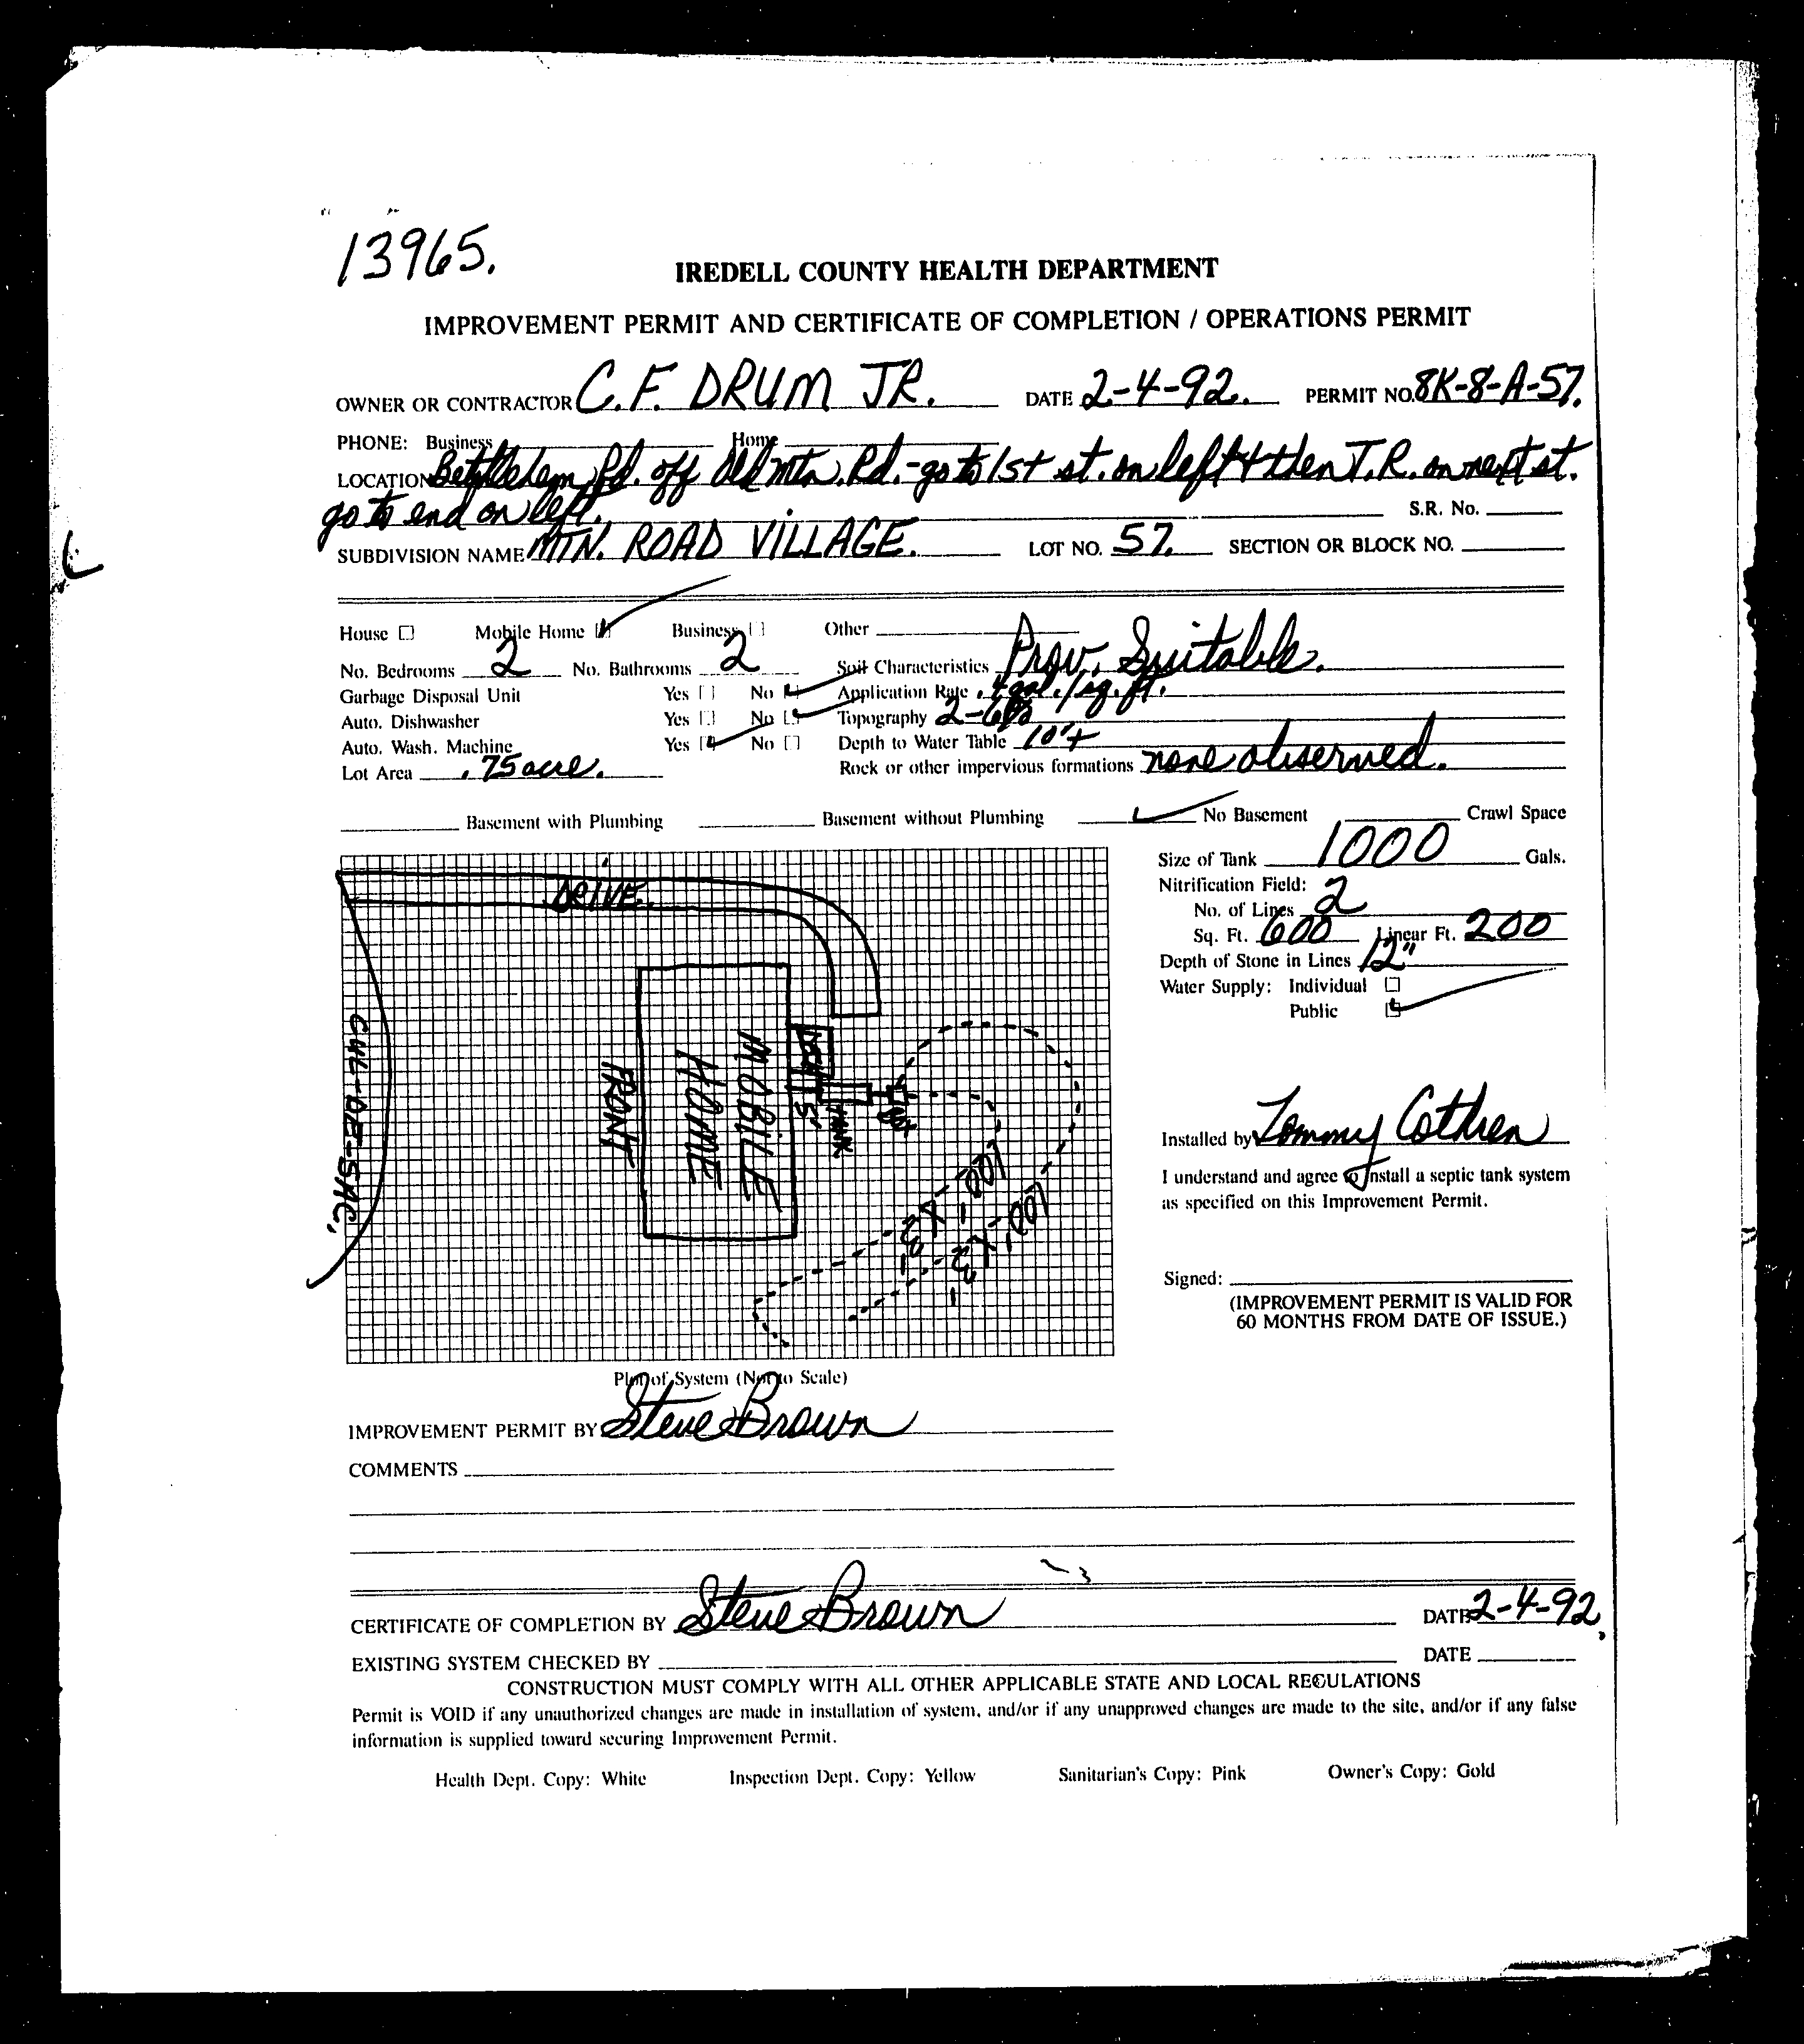 13965.
IREDELL COUNTY HEALTH DEPARTMENT
IMPROVEMENT PERMIT AND CERTIFICATE OF COMPLETION / OPERATIONS PERMIT
OWNER OR CONTRACTOR C.F. DRUM JR. DATE 2-4-92. PERMIT NO. 8K-8-A-57.
PHONE: Business Home
LOCATION Bethlehem Rd. off Old Mtn. Rd. - go to 1st st. on left & then T.R. on next st.
go to end on left. S.R. No.
SUBDIVISION NAME MTN. ROAD VILLAGE. LOT NO. 57. SECTION OR BLOCK NO.
House Mobile Home Business Other
No. Bedrooms 2 No. Bathrooms 2 Soil Characteristics Prov. Suitable.
Garbage Disposal Unit Yes No Application Rate .4 gal./sq. ft.
Auto. Dishwasher Yes No Topography 2-6%
Auto. Wash. Machine Yes No Depth to Water Table 10'+
Lot Area .75 acre. Rock or other impervious formations none observed.
Basement with Plumbing Basement without Plumbing No Basement Crawl Space
Size of Tank 1000 Gals.
Nitrification Field:
No. of Lines 2
Sq. Ft. 600 Linear Ft. 200
Depth of Stone in Lines 12"
Water Supply: Individual
Public
DRIVE.
CUL-DE-SAC.
FRONT
MOBILE
HOME
5'
TANK
100' X 3'
100' X 3'
Installed by Tommy Cothren
I understand and agree to install a septic tank system
as specified on this Improvement Permit.
Signed:
(IMPROVEMENT PERMIT IS VALID FOR
60 MONTHS FROM DATE OF ISSUE.)
Plot of System (Not to Scale)
IMPROVEMENT PERMIT BY Steve Brown
COMMENTS
CERTIFICATE OF COMPLETION BY Steve Brown DATE 2-4-92.
EXISTING SYSTEM CHECKED BY DATE
CONSTRUCTION MUST COMPLY WITH ALL OTHER APPLICABLE STATE AND LOCAL REGULATIONS
Permit is VOID if any unauthorized changes are made in installation of system, and/or if any unapproved changes are made to the site, and/or if any false
information is supplied toward securing Improvement Permit.
Health Dept. Copy: White Inspection Dept. Copy: Yellow Sanitarian's Copy: Pink Owner's Copy: Gold